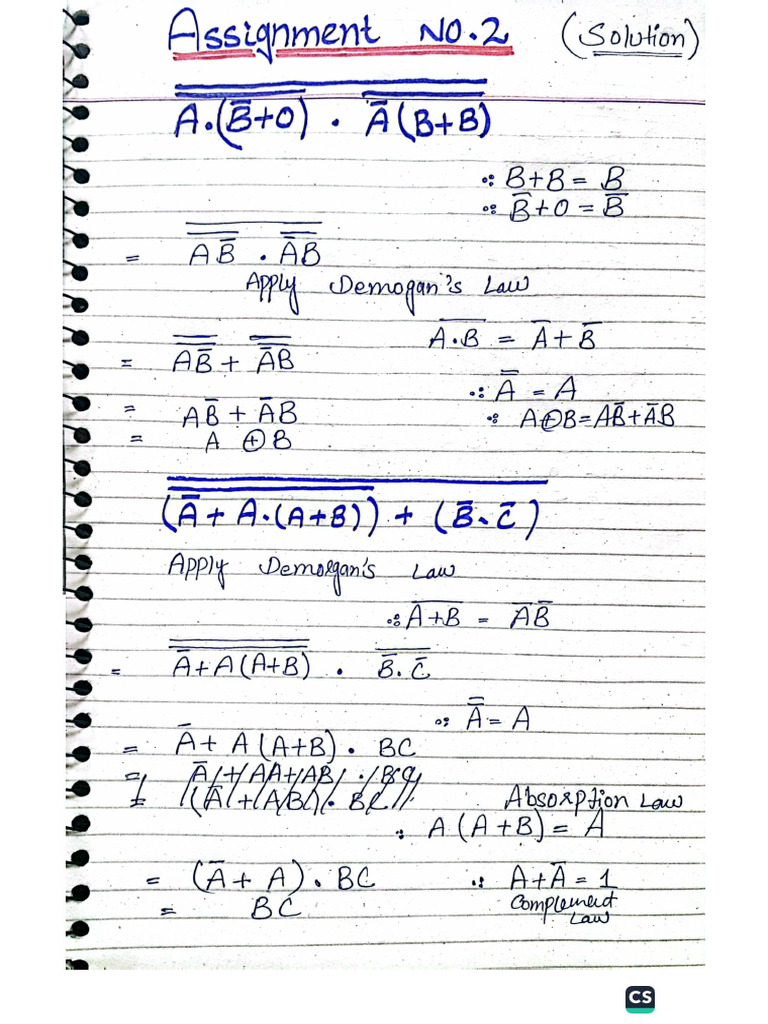 Assignment NO.2 (Solution)
A̿.̿(̿B̅+̿0̿)̿ . A̅(B+B)
∵ B+B = B
∵ B̅+0 = B̅
= AB̅ . A̅B
Apply Demogan's Law
A.B = A̅ + B̅
= AB̅ + A̅B
∵ A̿ = A
= AB̅ + A̅B
∵ A⊕B=AB̅+A̅B
= A ⊕ B
(A̅ + A.(A+B)) + (B̅.C̅)
Apply Demorgan's Law
∵ A+B = A̅B̅
= A̅+A(A+B) . B̅.C̅
∵ A̿ = A
= A̅+ A(A+B) . BC
= A̅ + AA+AB . BC
= (A̅ + AB) . BC
Absorption Law
∵ A(A+B) = A
= (A̅+ A) . BC
∵ A+A̅ = 1
= BC
Complement
Law
CS